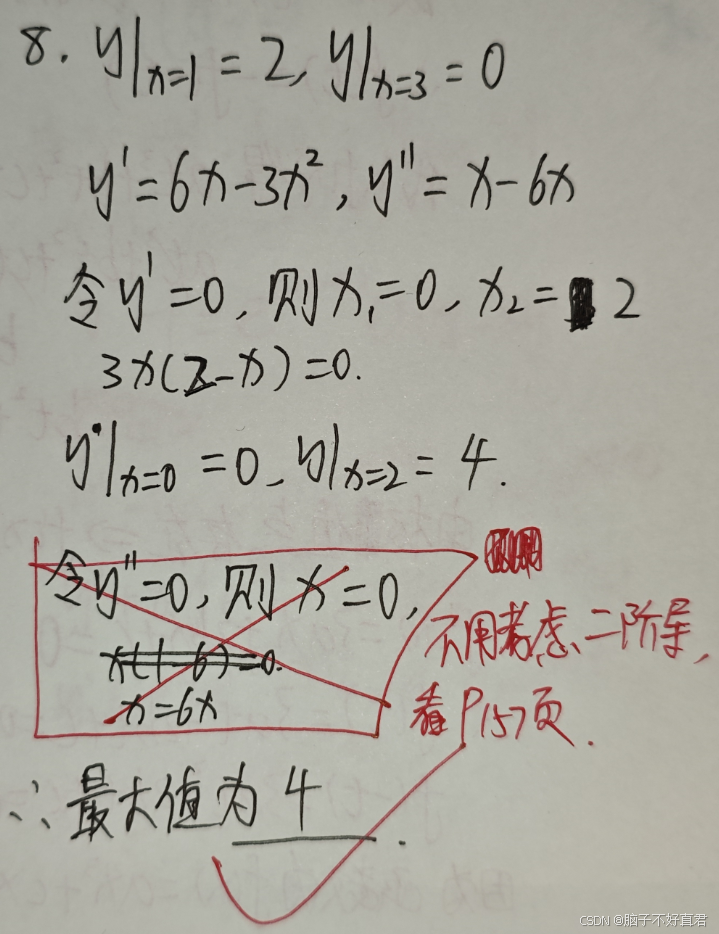 8. y|x=1 = 2, y|x=3 = 0
y' = 6x - 3x², y'' = x - 6x
令 y' = 0, 则 x₁ = 0, x₂ = 2
3x(2-x) = 0.
y|x=0 = 0, y|x=2 = 4.
令 y'' = 0, 则 x = 0,
x(1-6) = 0.
x = 6x
不用考虑二阶导,
看P157页.
∴ 最大值为 4.
CSDN @脑子不好直君